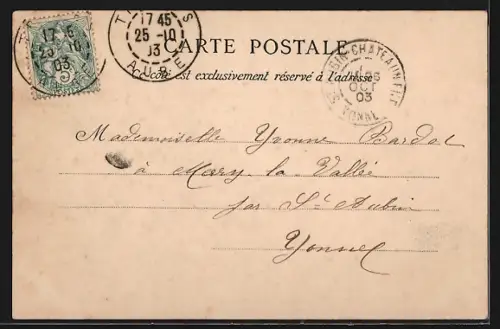 17 45
25-10
03
AUBE
17
25 10
03
5
CARTE POSTALE
Ce côté est exclusivement réservé à l'adresse
26
OCT
03
YONNE
Mademoiselle Yvonne Bardot
à Mary-la-Vallée
par St Aubin
Yonne